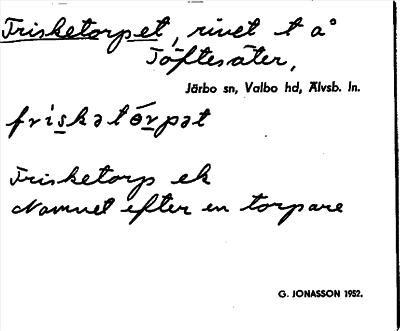 Frisketorpet, rivet t a°
Töftesäter,
Järbo sn, Valbo hd, Älvsb. ln.
friskatórpət
Frisketorp ek
Namnet efter en torpare
G. JONASSON 1952.